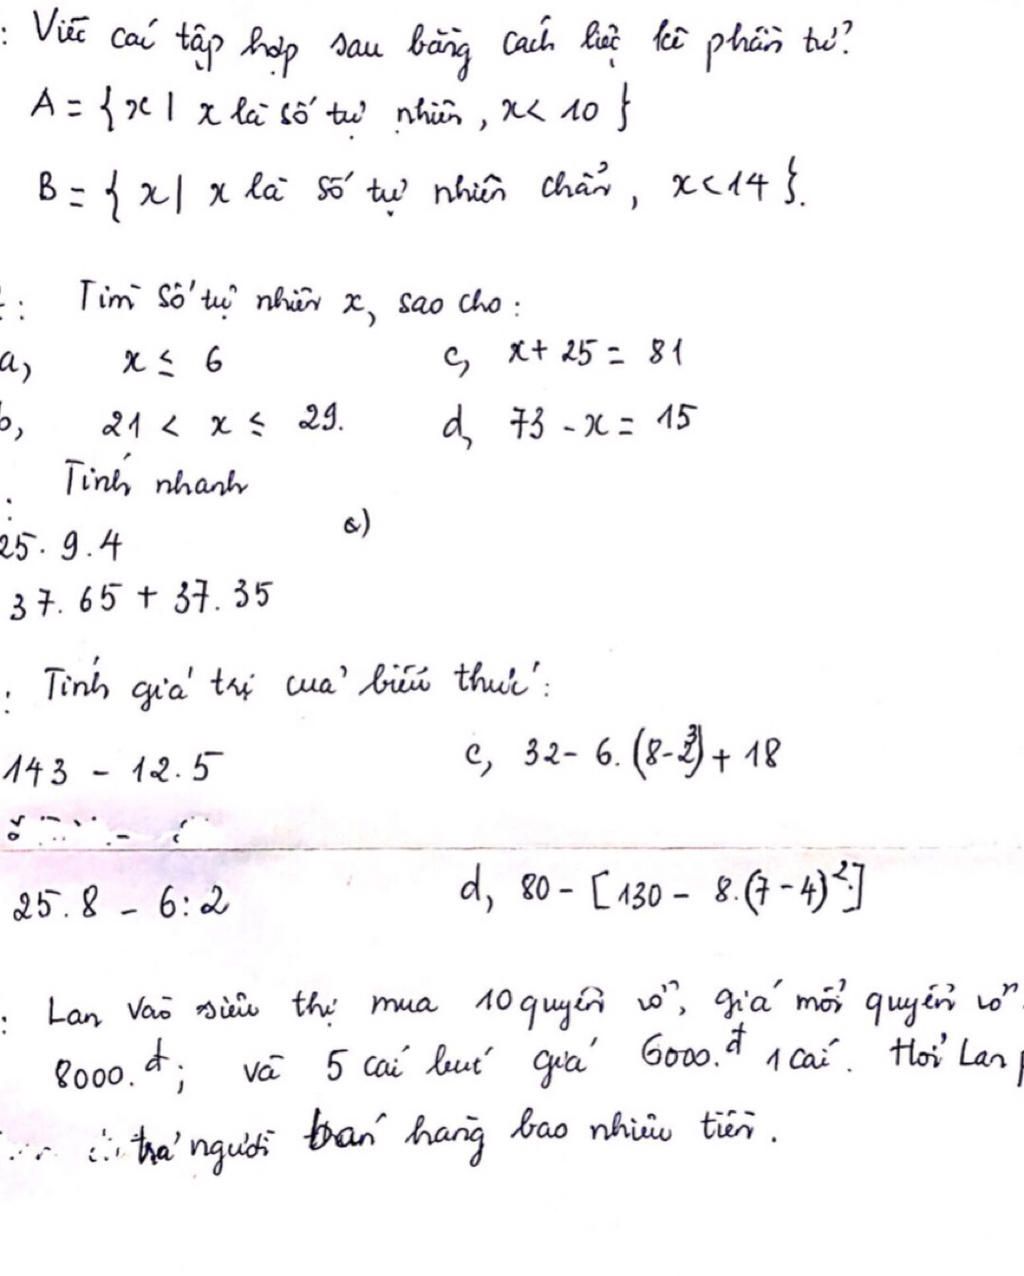 : Viết các tập hợp sau bằng cách liệt kê phần tử?
A = { x | x là số tự nhiên, x < 10 }
B = { x | x là số tự nhiên chẵn, x < 14 }.
: Tìm số tự nhiên x, sao cho :
a, x ≤ 6 c, x + 25 = 81
b, 21 < x ≤ 29. d, 73 - x = 15
: Tính nhanh
a)
25 . 9 . 4
37 . 65 + 37 . 35
: Tính giá trị của biểu thức :
143 - 12 . 5 c, 32 - 6 . (8 - 2³) + 18
25 . 8 - 6 : 2 d, 80 - [130 - 8 . (7 - 4)²]
: Lan vào siêu thị mua 10 quyển vở, giá mỗi quyển vở
8000.đ ; và 5 cái bút giá 6000.đ 1 cái. Hỏi Lan
trả người bán hàng bao nhiêu tiền.